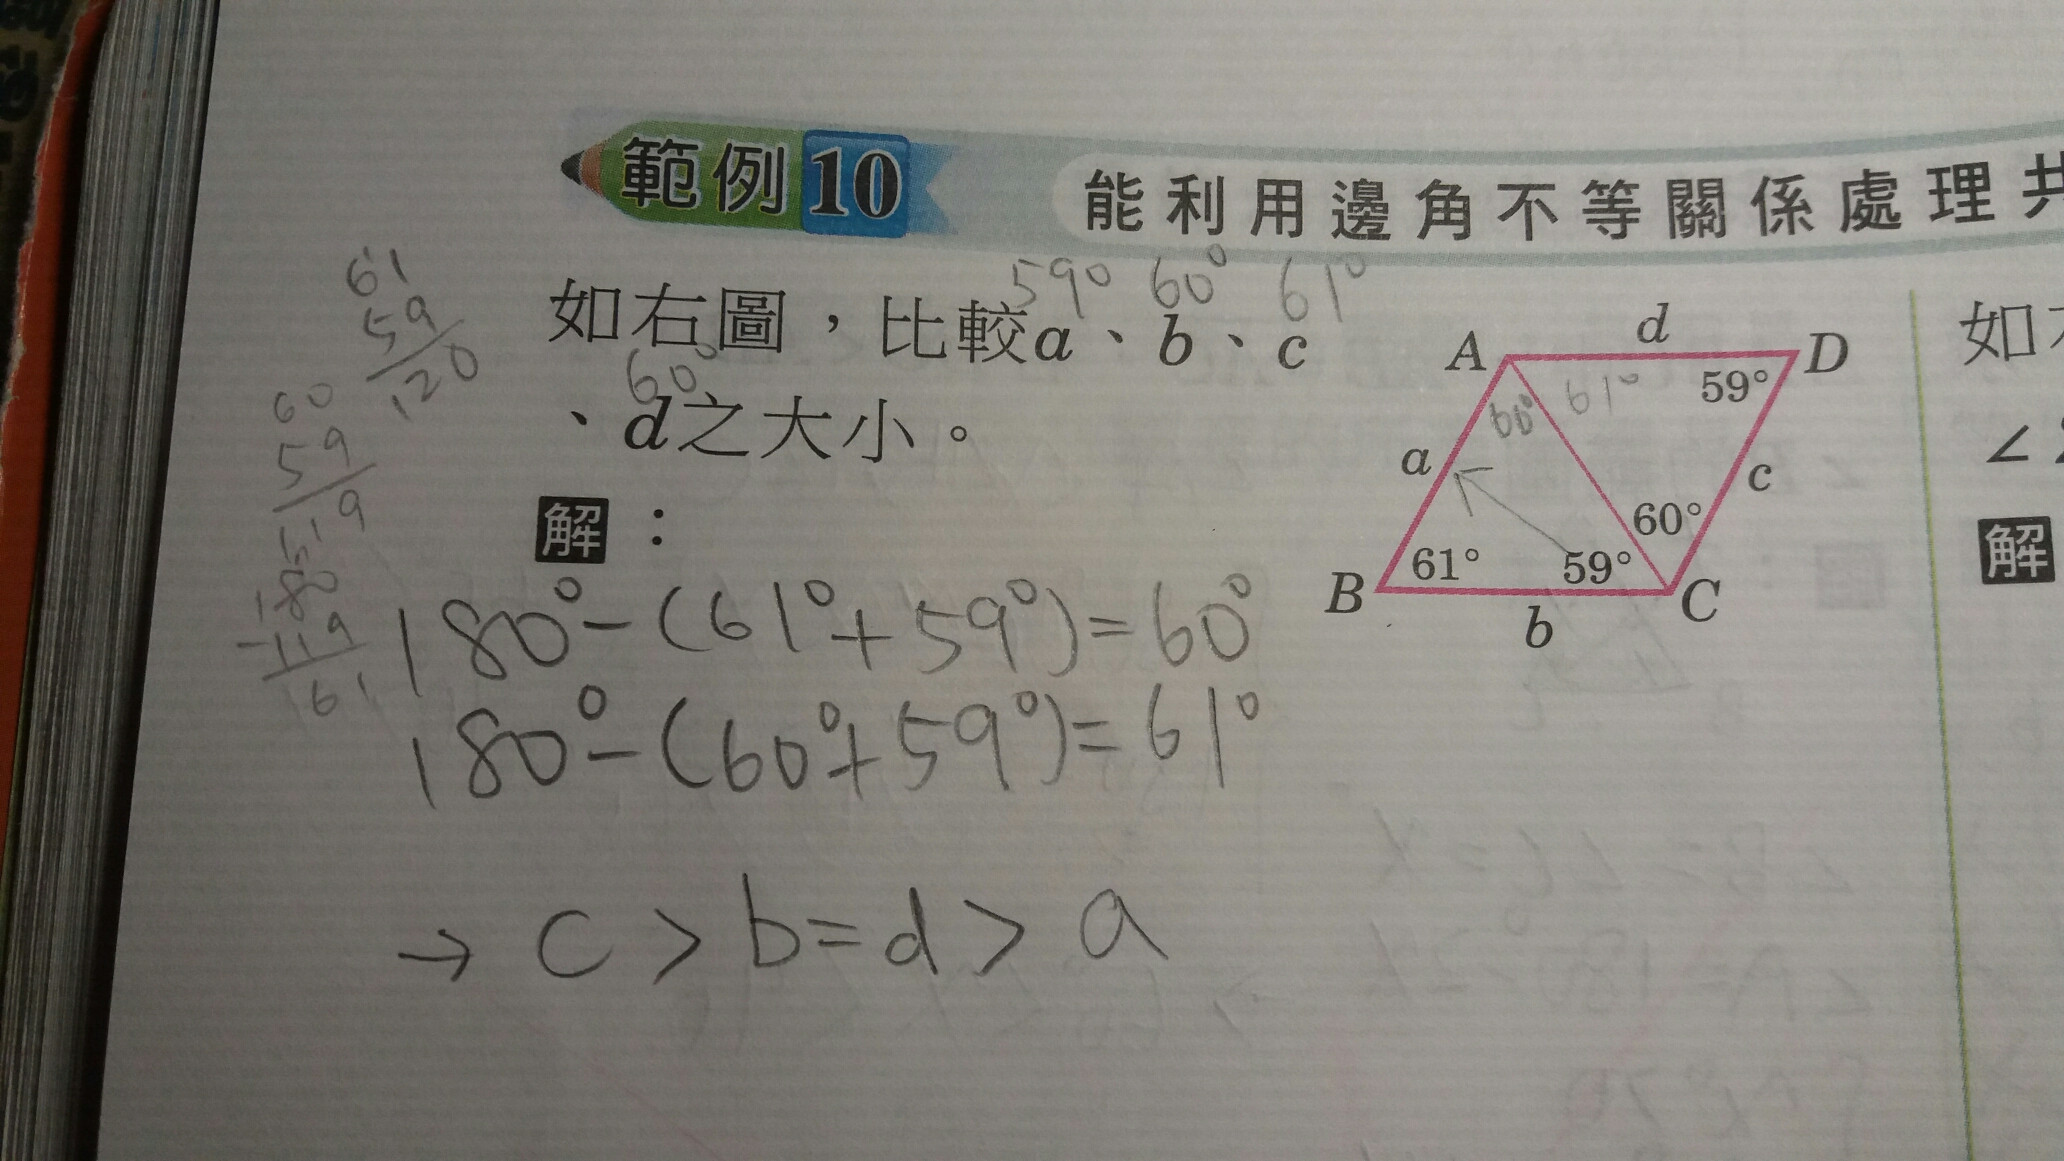 範例10 能利用邊角不等關係處理共
59° 60° 61°
如右圖，比較a、b、c
60°
、d之大小。
解：
180°-(61°+59°)=60°
180°-(60°+59°)=61°
→ c > b=d > a
61
59
120
60
59
119
180
-119
61
d
A
D
61°
59°
60°
a
c
60°
61°
59°
B
C
b
如
∠
解